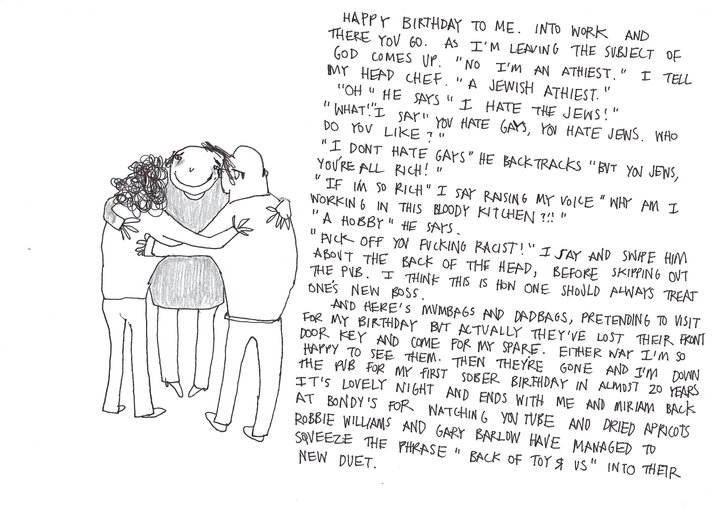 HAPPY BIRTHDAY TO ME. INTO WORK AND
THERE YOU GO. AS I'M LEAVING THE SUBJECT OF
GOD COMES UP. "NO I'M AN ATHIEST." I TELL
MY HEAD CHEF. "A JEWISH ATHIEST."
"OH" HE SAYS "I HATE THE JEWS!"
"WHAT!" I SAY "YOU HATE GAYS, YOU HATE JEWS. WHO
DO YOU LIKE?"
"I DONT HATE GAYS" HE BACKTRACKS "BUT YOU JEWS,
YOU'RE ALL RICH!"
"IF I'M SO RICH" I SAY RAISING MY VOICE "WHY AM I
WORKING IN THIS BLOODY KITCHEN?!!"
"A HOBBY" HE SAYS.
"FUCK OFF YOU FUCKING RACIST!" I SAY AND SWIPE HIM
ABOUT THE BACK OF THE HEAD, BEFORE SKIPPING OUT
THE PUB. I THINK THIS IS HOW ONE SHOULD ALWAYS TREAT
ONE'S NEW BOSS.
AND HERE'S MUMBAGS AND DADBAGS, PRETENDING TO VISIT
FOR MY BIRTHDAY BUT ACTUALLY THEY'VE LOST THEIR FRONT
DOOR KEY AND COME FOR MY SPARE. EITHER WAY I'M SO
HAPPY TO SEE THEM. THEN THEY'RE GONE AND I'M DOWN
THE PUB FOR MY FIRST SOBER BIRTHDAY IN ALMOST 20 YEARS
IT'S LOVELY NIGHT AND ENDS WITH ME AND MIRIAM BACK
AT BONDY'S FOR WATCHING YOUTUBE AND DRIED APRICOTS
ROBBIE WILLIAMS AND GARY BARLOW HAVE MANAGED TO
SQUEEZE THE PHRASE "BACK OF TOY Я US" INTO THEIR
NEW DUET.